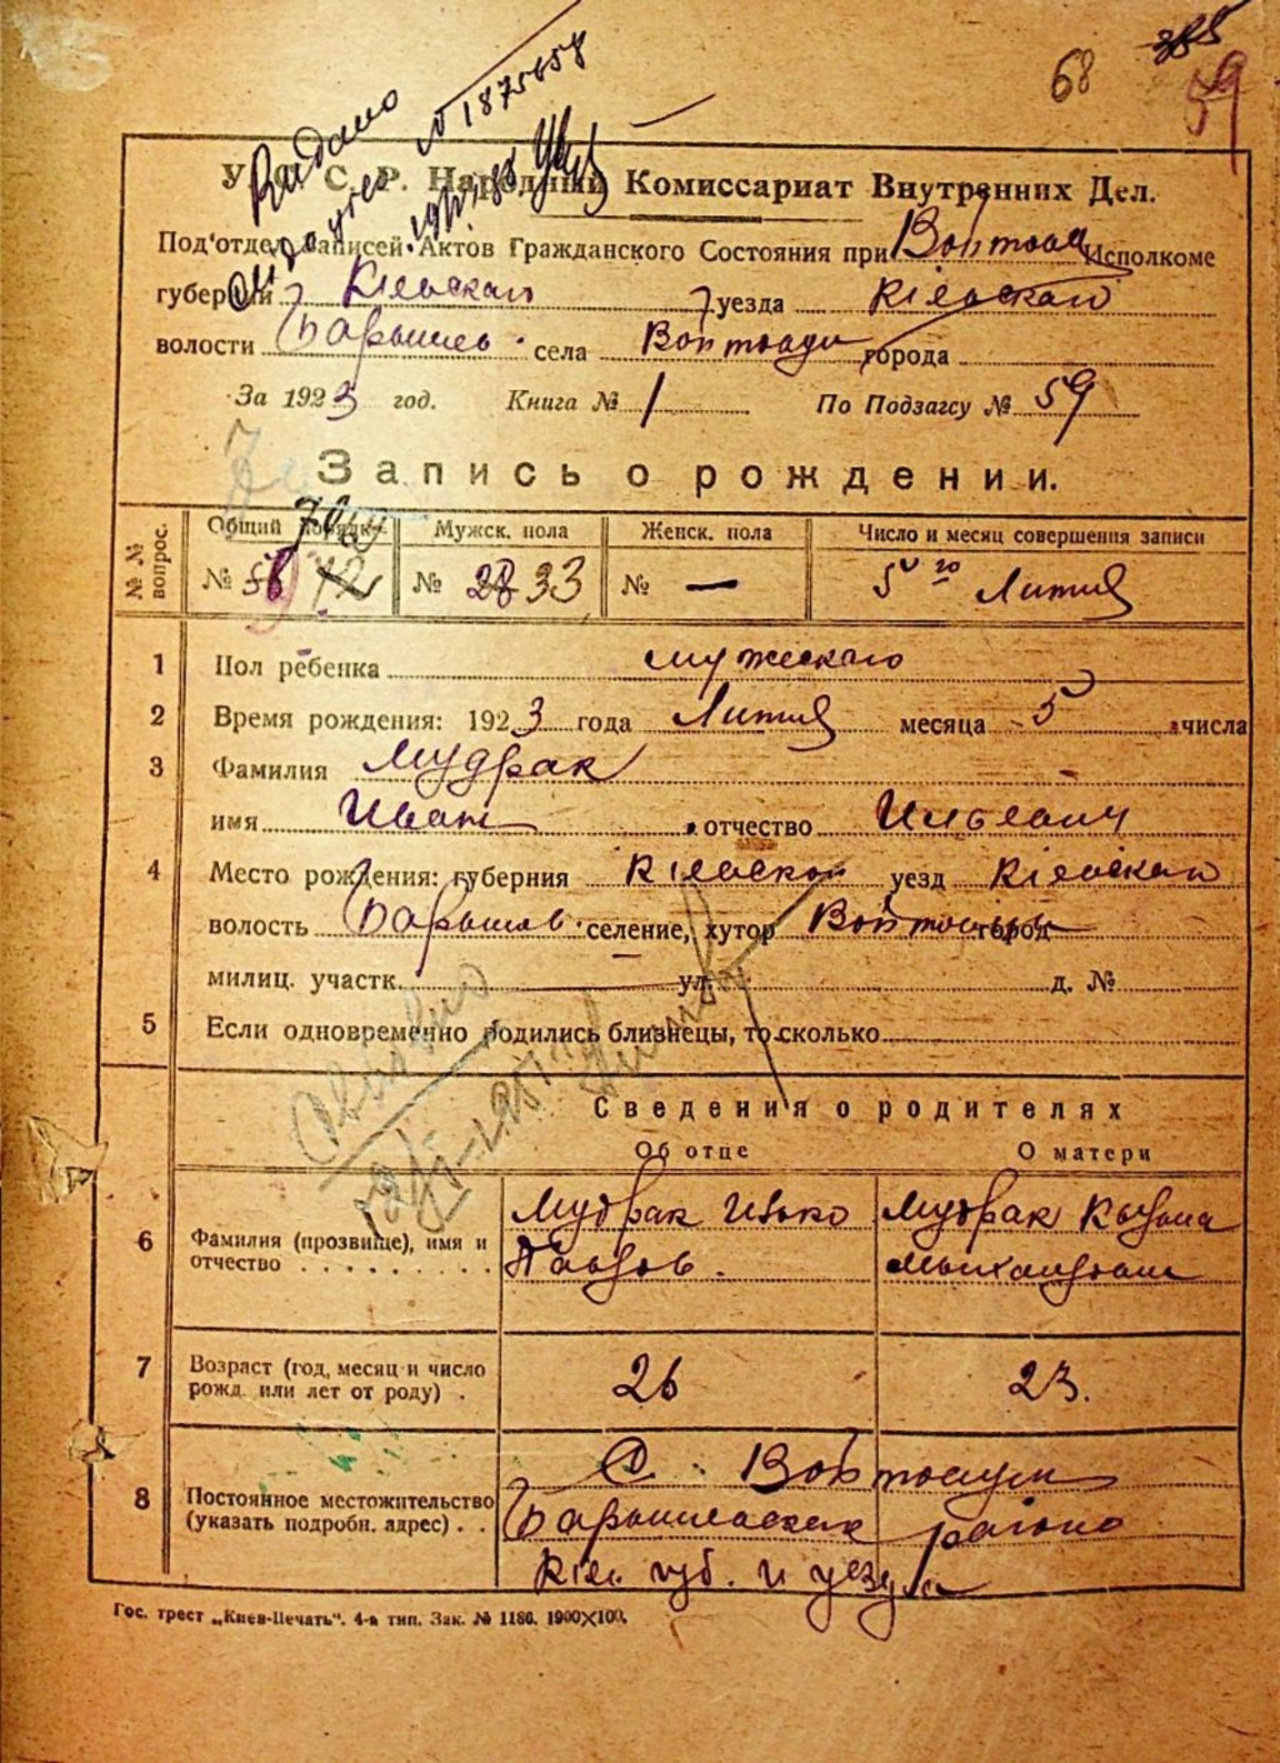 68 385
59
Видано
№ 1875658
У. С. С. Р. Народный Комиссариат Внутренних Дел.
Под'отдел Записей Актов Гражданского Состояния при Войтов Исполкоме
губернии Кіевскаго уезда Кіевскаго
волости Барышев. села Войтовци города
За 1923 год. Книга № 1 По Подзагсу № 59
Запись о рождении.
№№ вопрос. Общий порядк. Мужск. пола Женск. пола Число и месяц совершения записи
№ 58 72 № 28 33 № — 5го Лютия
1 Пол ребенка мужескаго
2 Время рождения: 1923 года Лютия месяца 5 числа
3 Фамилия Мудрак
имя Иван отчество Ильевич
4 Место рождения: губерния Кіевской уезд Кіевскаго
волость Барышев. селение, хутор Войтовци город
милиц. участк. ул. д. №
5 Если одновременно родились близнецы, то сколько
Сведения о родителях
Об отце О матери
6 Фамилия (прозвище), имя и отчество Мудрак Илько Мудрак
7 Возраст (год, месяц и число рожд. или лет от роду) 26 23.
8 Постоянное местожительство (указать подробн. адрес) С. Войтовци
району
Кіев. губ. и уезда
Гос. трест „Киев-Печать". 4-я тип. Зак. № 1186. 1900X100.